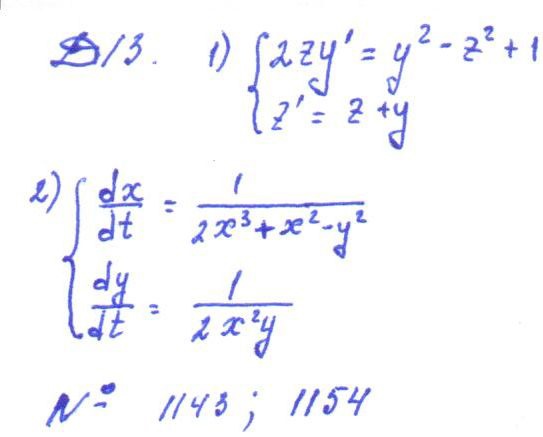 Д/З. 1) { 2zy' = y² - z² + 1
z' = z + y
2) { dx/dt = 1/(2x³ + x² - y²)
dy/dt = 1/(2x²y)
№ 1143; 1154